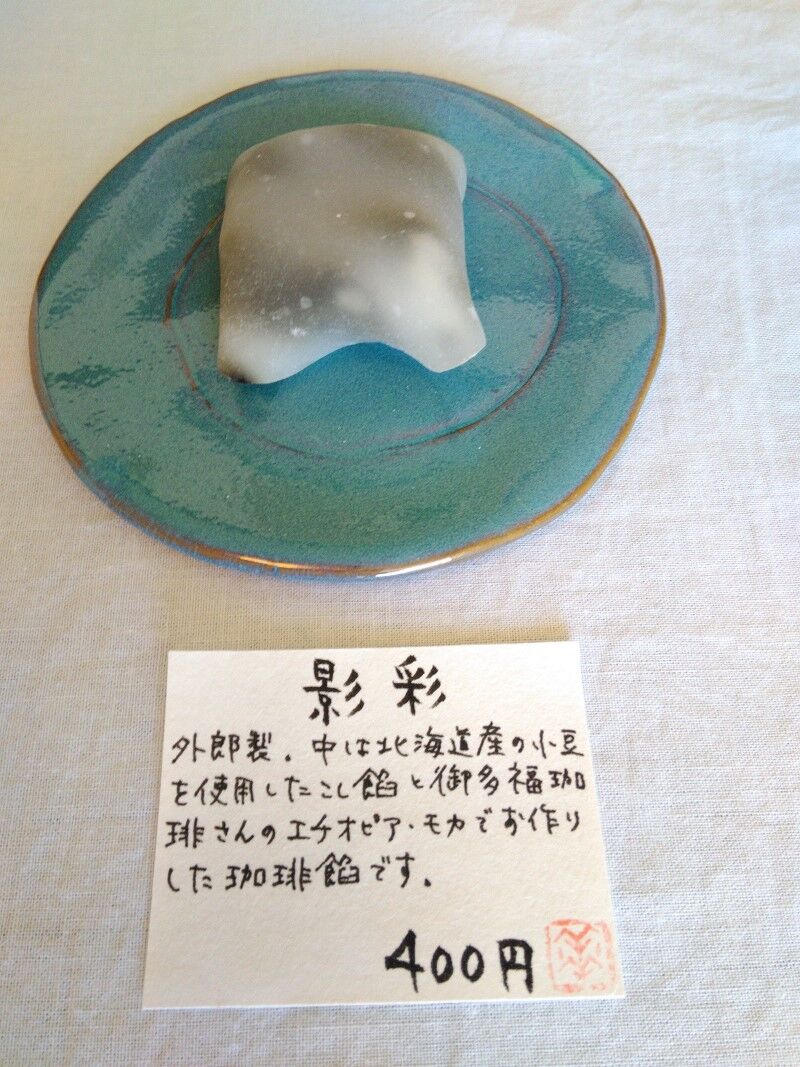 影彩
外郎製。中は北海道産の小豆
を使用したこし餡と御多福珈
琲さんのエチオピア・モカでお作り
した珈琲餡です。
400円